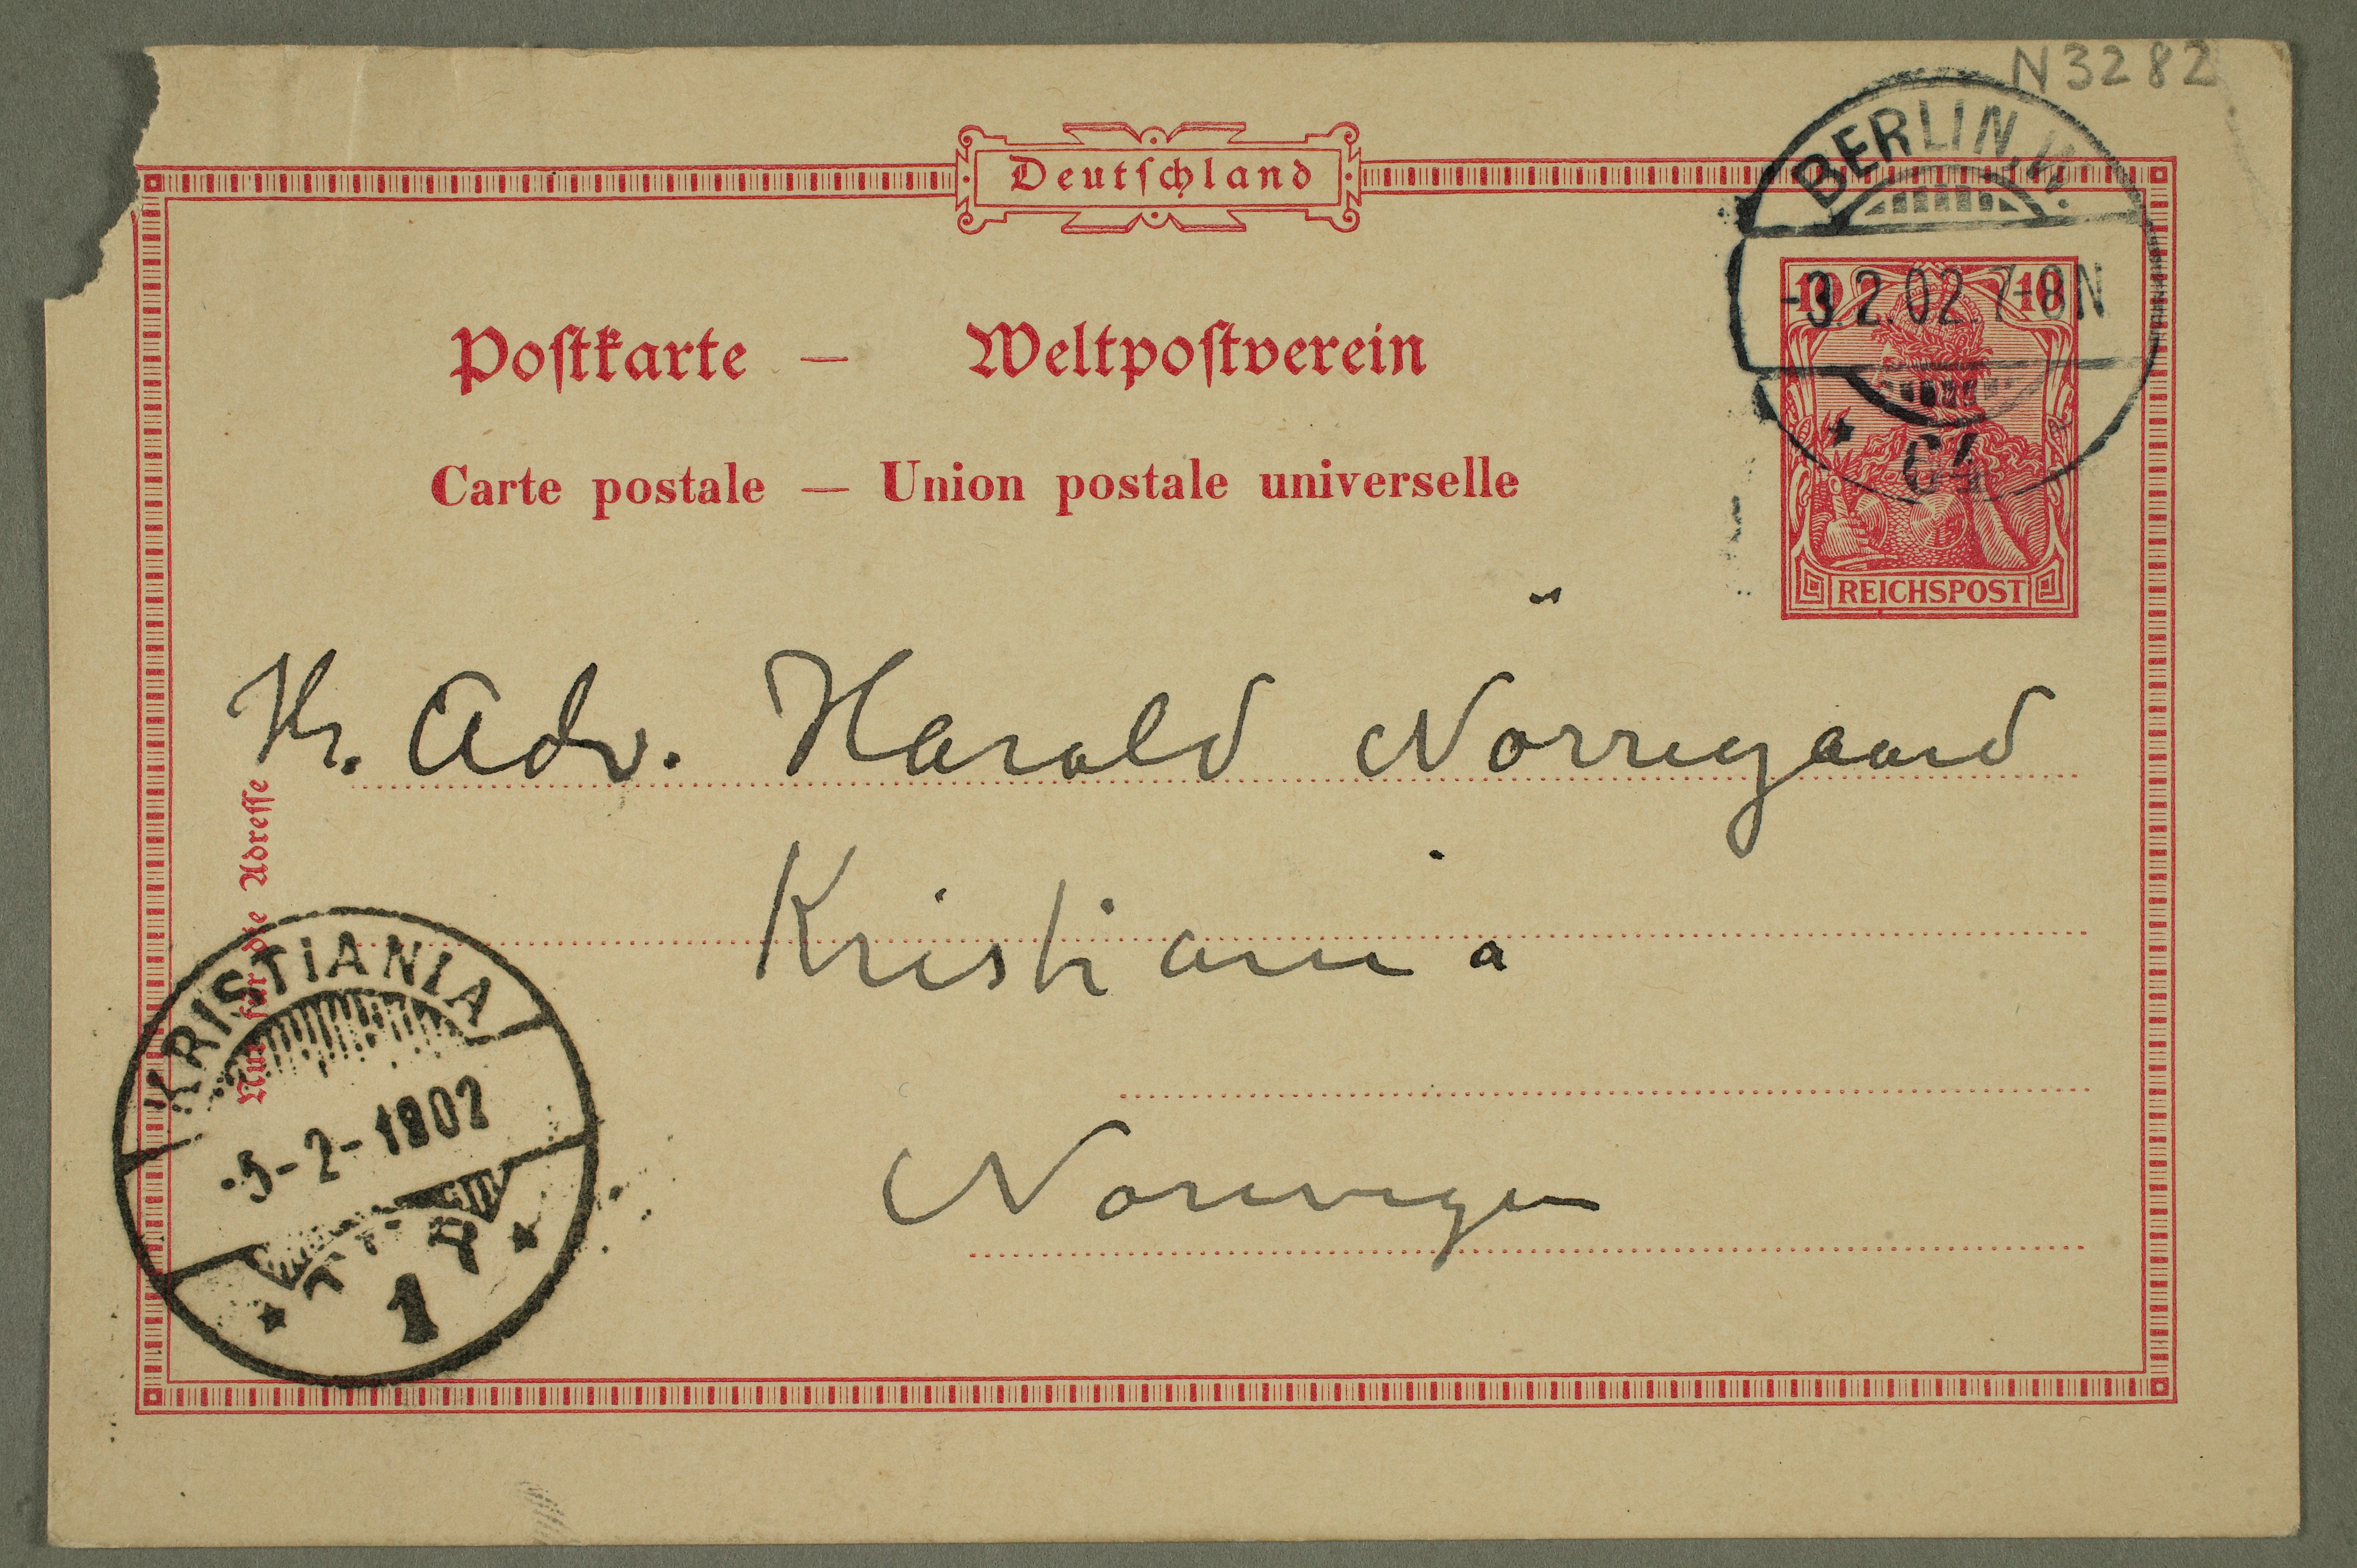 N3282
Deutſchland
BERLIN.W.
-3.2.02 7-8N
64
10 10
REICHSPOST
Poſtkarte — Weltpoſtverein
Carte postale — Union postale universelle
Hr. Adv. Harald Nörregaard
Kristiania
Norwegen
Nur für die Adreſſe
KRISTIANIA
-5-2-1902
1